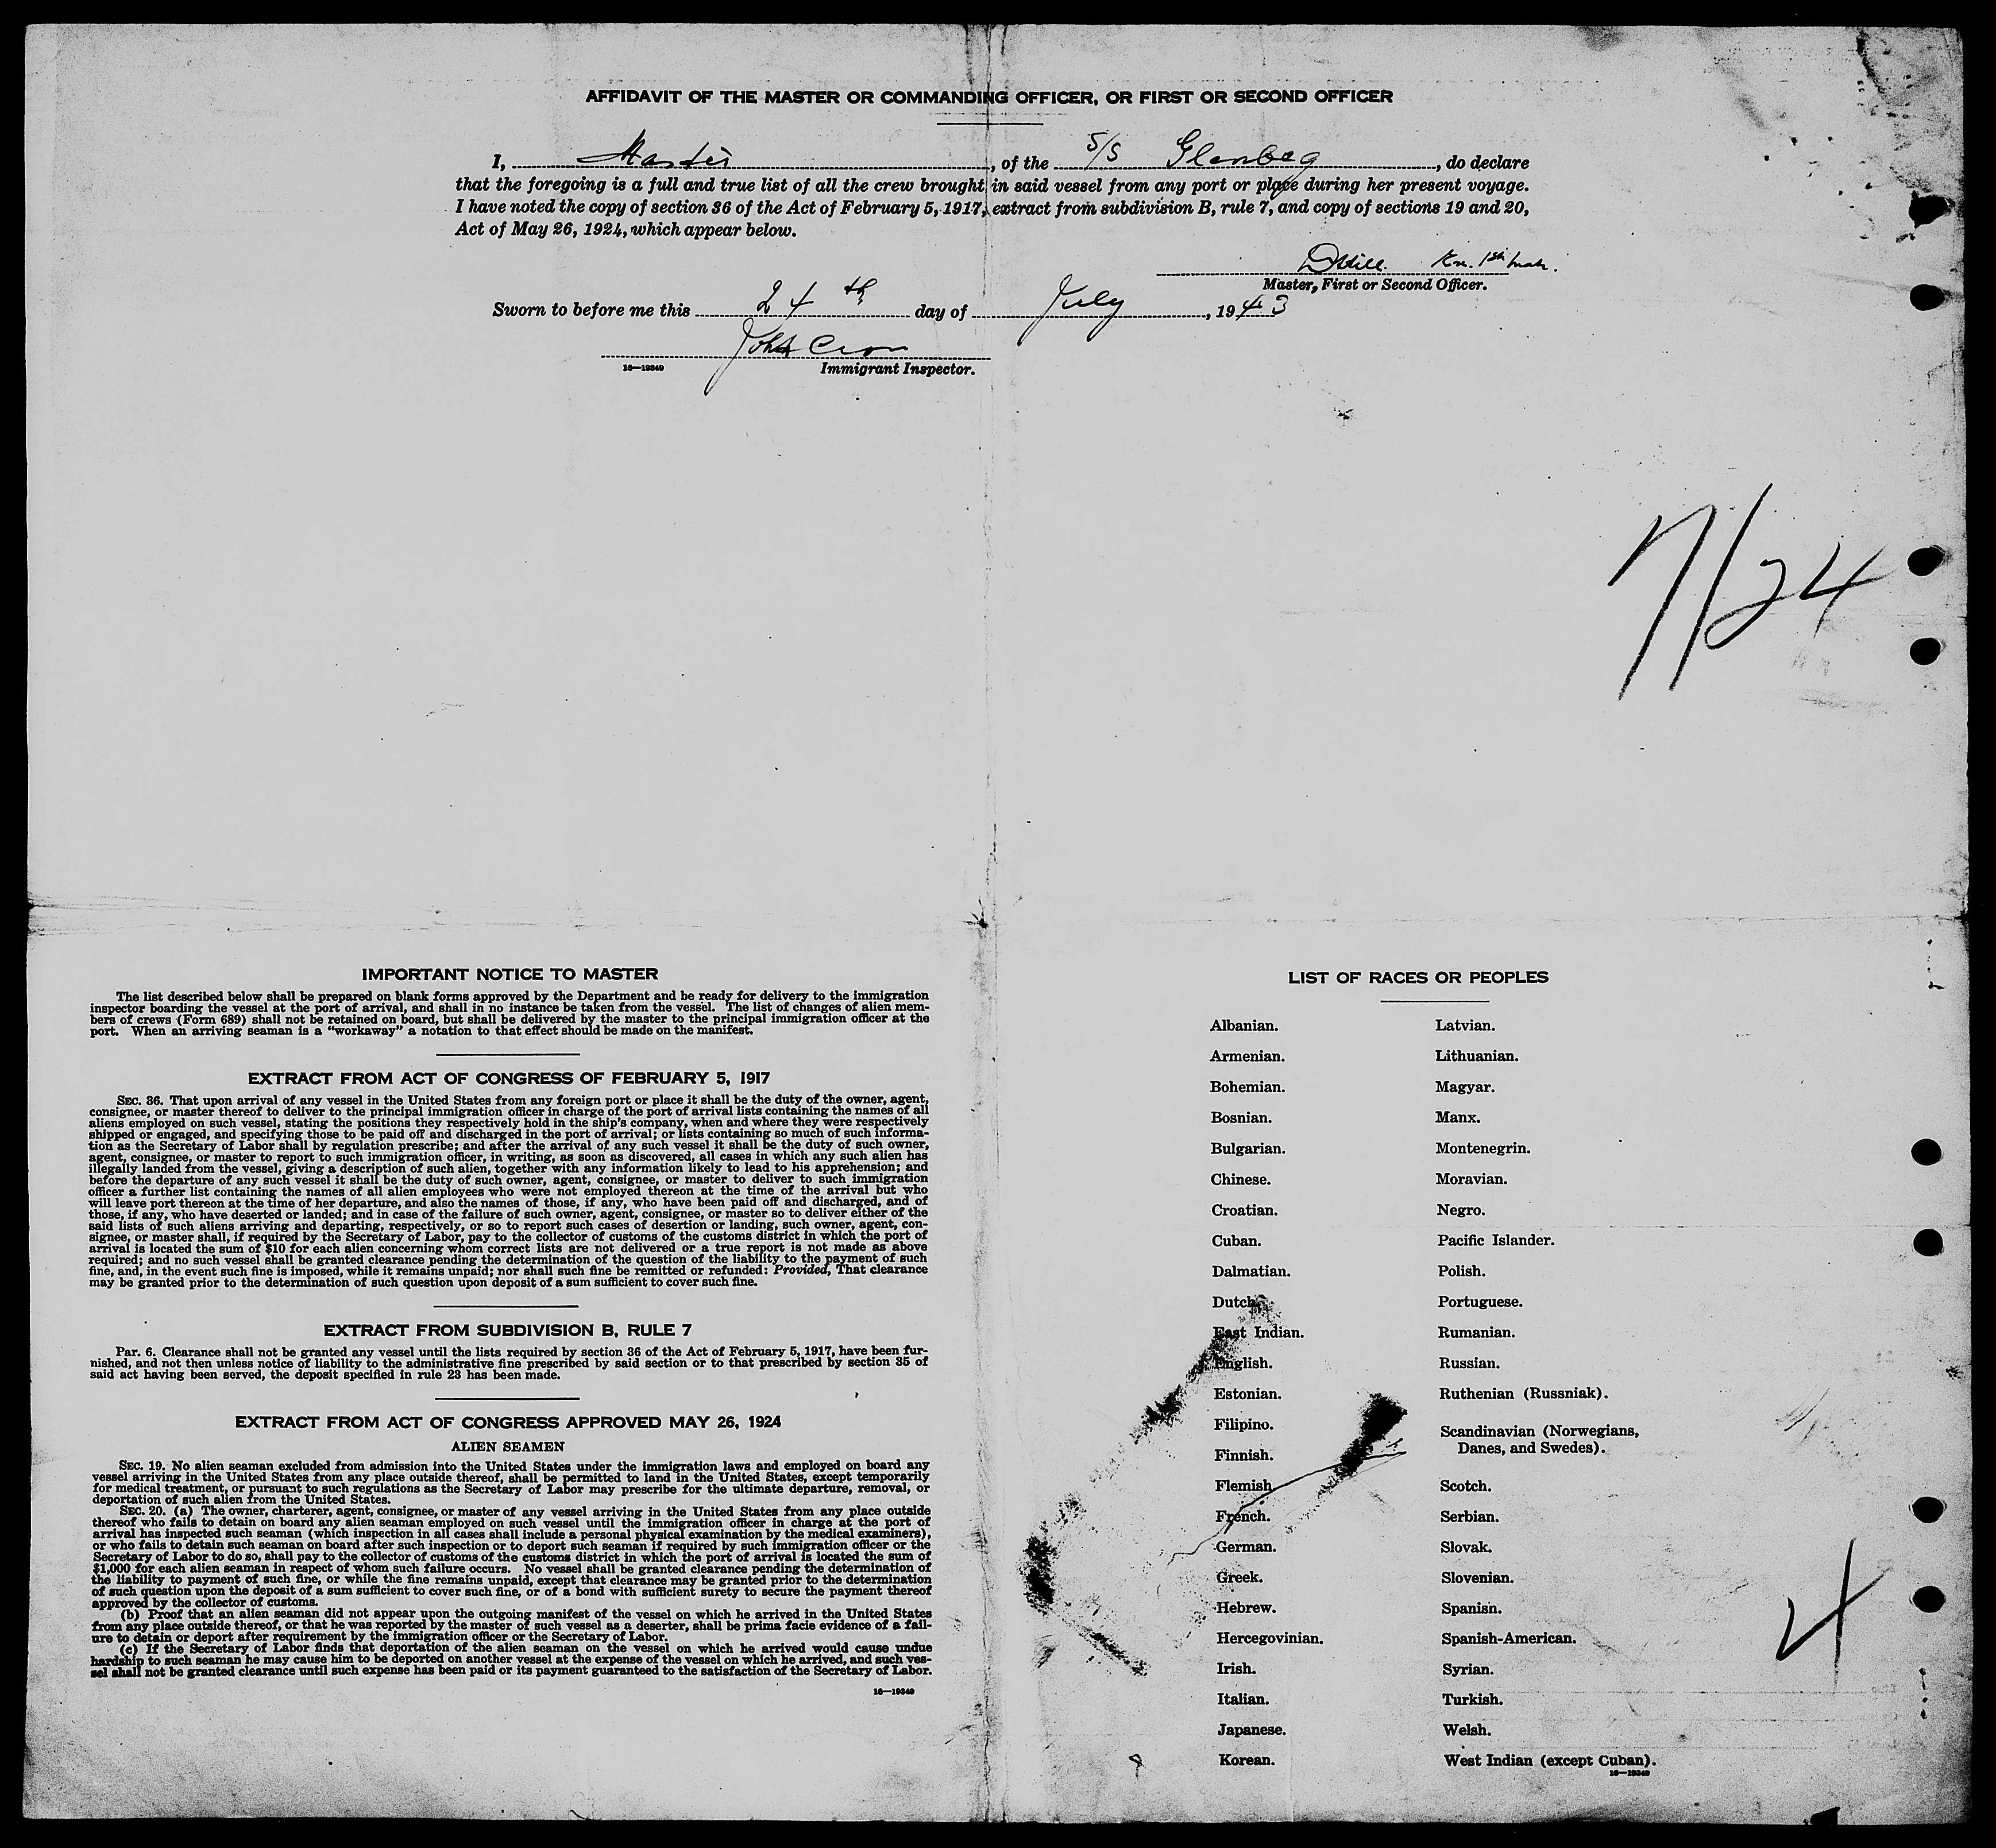 AFFIDAVIT OF THE MASTER OR COMMANDING OFFICER, OR FIRST OR SECOND OFFICER
I, Master, of the S/S Glenbeg, do declare
that the foregoing is a full and true list of all the crew brought in said vessel from any port or place during her present voyage.
I have noted the copy of section 36 of the Act of February 5, 1917, extract from subdivision B, rule 7, and copy of sections 19 and 20,
Act of May 26, 1924, which appear below.
Master, First or Second Officer.
Sworn to before me this 24th day of July, 1943
John
16—19349 Immigrant Inspector.
7/24
IMPORTANT NOTICE TO MASTER
The list described below shall be prepared on blank forms approved by the Department and be ready for delivery to the immigration
inspector boarding the vessel at the port of arrival, and shall in no instance be taken from the vessel. The list of changes of alien mem-
bers of crews (Form 689) shall not be retained on board, but shall be delivered by the master to the principal immigration officer at the
port. When an arriving seaman is a "workaway" a notation to that effect should be made on the manifest.
EXTRACT FROM ACT OF CONGRESS OF FEBRUARY 5, 1917
SEC. 36. That upon arrival of any vessel in the United States from any foreign port or place it shall be the duty of the owner, agent,
consignee, or master thereof to deliver to the principal immigration officer in charge of the port of arrival lists containing the names of all
aliens employed on such vessel, stating the positions they respectively hold in the ship's company, when and where they were respectively
shipped or engaged, and specifying those to be paid off and discharged in the port of arrival; or lists containing so much of such informa-
tion as the Secretary of Labor shall by regulation prescribe; and after the arrival of any such vessel it shall be the duty of such owner,
agent, consignee, or master to report to such immigration officer, in writing, as soon as discovered, all cases in which any such alien has
illegally landed from the vessel, giving a description of such alien, together with any information likely to lead to his apprehension; and
before the departure of any such vessel it shall be the duty of such owner, agent, consignee, or master to deliver to such immigration
officer a further list containing the names of all alien employees who were not employed thereon at the time of the arrival but who
will leave port thereon at the time of her departure, and also the names of those, if any, who have been paid off and discharged, and of
those, if any, who have deserted or landed; and in case of the failure of such owner, agent, consignee, or master so to deliver either of the
said lists of such aliens arriving and departing, respectively, or so to report such cases of desertion or landing, such owner, agent, con-
signee, or master shall, if required by the Secretary of Labor, pay to the collector of customs of the customs district in which the port of
arrival is located the sum of $10 for each alien concerning whom correct lists are not delivered or a true report is not made as above
required; and no such vessel shall be granted clearance pending the determination of the question of the liability to the payment of such
fine, and, in the event such fine is imposed, while it remains unpaid; nor shall such fine be remitted or refunded: Provided, That clearance
may be granted prior to the determination of such question upon deposit of a sum sufficient to cover such fine.
EXTRACT FROM SUBDIVISION B, RULE 7
Par. 6. Clearance shall not be granted any vessel until the lists required by section 36 of the Act of February 5, 1917, have been fur-
nished, and not then unless notice of liability to the administrative fine prescribed by said section or to that prescribed by section 35 of
said act having been served, the deposit specified in rule 23 has been made.
EXTRACT FROM ACT OF CONGRESS APPROVED MAY 26, 1924
ALIEN SEAMEN
SEC. 19. No alien seaman excluded from admission into the United States under the immigration laws and employed on board any
vessel arriving in the United States from any place outside thereof, shall be permitted to land in the United States, except temporarily
for medical treatment, or pursuant to such regulations as the Secretary of Labor may prescribe for the ultimate departure, removal, or
deportation of such alien from the United States.
SEC. 20. (a) The owner, charterer, agent, consignee, or master of any vessel arriving in the United States from any place outside
thereof who fails to detain on board any alien seaman employed on such vessel until the immigration officer in charge at the port of
arrival has inspected such seaman (which inspection in all cases shall include a personal physical examination by the medical examiners),
or who fails to detain such seaman on board after such inspection or to deport such seaman if required by such immigration officer or the
Secretary of Labor to do so, shall pay to the collector of customs of the customs district in which the port of arrival is located the sum of
$1,000 for each alien seaman in respect of whom such failure occurs. No vessel shall be granted clearance pending the determination of
the liability to payment of such fine, or while the fine remains unpaid, except that clearance may be granted prior to the determination
of such question upon the deposit of a sum sufficient to cover such fine, or of a bond with sufficient surety to secure the payment thereof
approved by the collector of customs.
(b) Proof that an alien seaman did not appear upon the outgoing manifest of the vessel on which he arrived in the United States
from any place outside thereof, or that he was reported by the master of such vessel as a deserter, shall be prima facie evidence of a fail-
ure to detain or deport after requirement by the immigration officer or the Secretary of Labor.
(c) If the Secretary of Labor finds that deportation of the alien seaman on the vessel on which he arrived would cause undue
hardship to such seaman he may cause him to be deported on another vessel at the expense of the vessel on which he arrived, and such ves-
sel shall not be granted clearance until such expense has been paid or its payment guaranteed to the satisfaction of the Secretary of Labor.
16—19349
LIST OF RACES OR PEOPLES
Albanian. Latvian.
Armenian. Lithuanian.
Bohemian. Magyar.
Bosnian. Manx.
Bulgarian. Montenegrin.
Chinese. Moravian.
Croatian. Negro.
Cuban. Pacific Islander.
Dalmatian. Polish.
Dutch. Portuguese.
East Indian. Rumanian.
English. Russian.
Estonian. Ruthenian (Russniak).
Filipino. Scandinavian (Norwegians,
Finnish. Danes, and Swedes).
Flemish. Scotch.
French. Serbian.
German. Slovak.
Greek. Slovenian.
Hebrew. Spanish.
Hercegovinian. Spanish-American.
Irish. Syrian.
Italian. Turkish.
Japanese. Welsh.
Korean. West Indian (except Cuban).
16—19349
4